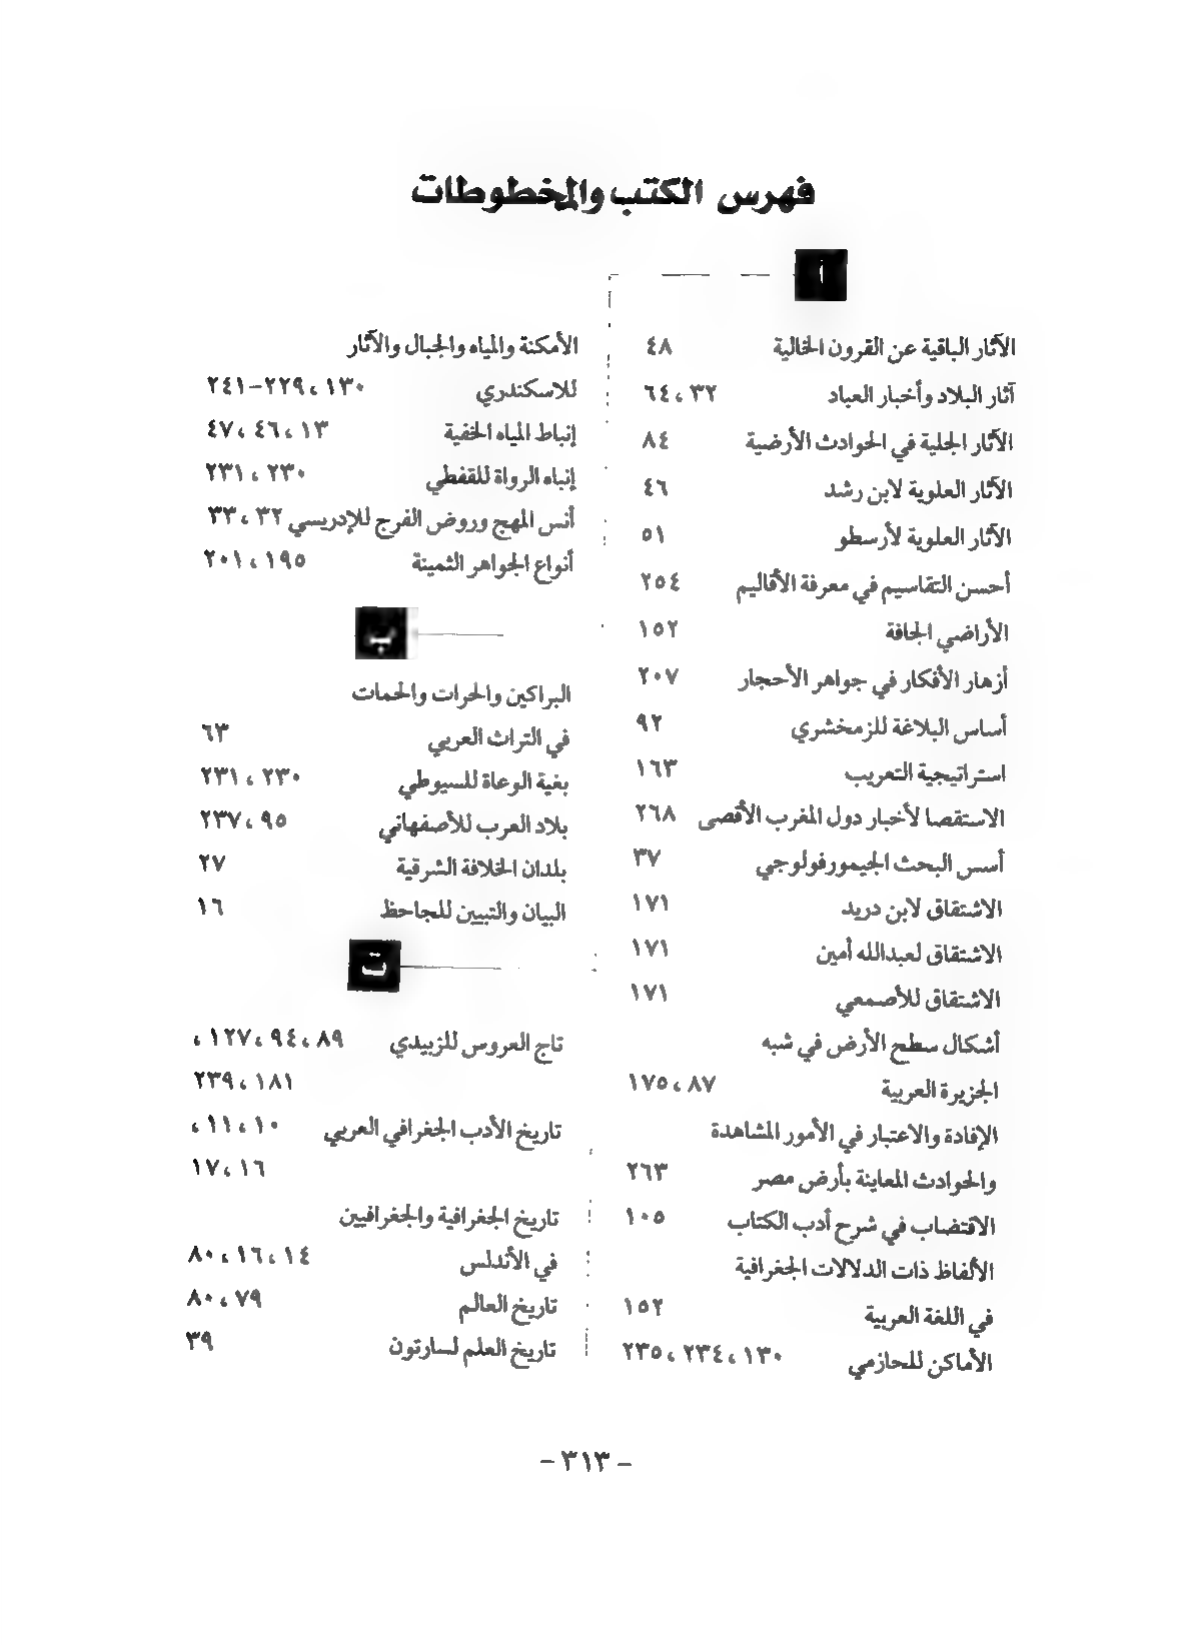 فهرس الكتب والمخطوطات
أ
الآثار الباقية عن القرون الخالية ٤٨
آثار البلاد وأخبار العباد ٣٢، ٦٤
الآثار الجلية في الحوادث الأرضية ٨٤
الآثار العلوية لابن رشد ٤٦
الآثار العلوية لأرسطو ٥١
أحسن التقاسيم في معرفة الأقاليم ٢٥٤
الأراضي الجافة ١٥٢
أزهار الأفكار في جواهر الأحجار ٢٠٧
أساس البلاغة للزمخشري ٩٢
استراتيجية التعريب ١٦٣
الاستقصا لأخبار دول المغرب الأقصى ٢٦٨
أسس البحث الجيمورفولوجي ٣٧
الاشتقاق لابن دريد ١٧١
الاشتقاق لعبدالله أمين ١٧١
الاشتقاق للأصمعي ١٧١
أشكال سطح الأرض في شبه
الجزيرة العربية ٨٧، ١٧٥
الإفادة والاعتبار في الأمور المشاهدة
والحوادث المعاينة بأرض مصر ٢٦٣
الاقتضاب في شرح أدب الكتاب ١٠٥
الألفاظ ذات الدلالات الجغرافية
في اللغة العربية ١٥٢
الأماكن للحازمي ١٣٠، ٢٣٤، ٢٣٥
الأمكنة والمياه والجبال والآثار
للاسكندري ١٣٠، ٢٢٩-٢٤١
إنباط المياه الخفية ١٣، ٤٦، ٤٧
إنباه الرواة للقفطي ٢٣٠، ٢٣١
أنس المهج وروض الفرج للإدريسي ٣٢، ٣٣
أنواع الجواهر الثمينة ١٩٥، ٢٠١
ب
البراكين والحرات والحمات
في التراث العربي ٦٣
بغية الوعاة للسيوطي ٢٣٠، ٢٣١
بلاد العرب للأصفهاني ٩٥، ٢٣٧
بلدان الخلافة الشرقية ٢٧
البيان والتبيين للجاحظ ١٦
ت
تاج العروس للزبيدي ٨٩، ٩٤، ١٢٧،
١٨١، ٢٣٩
تاريخ الأدب الجغرافي العربي ١٠، ١١،
١٦، ١٧
تاريخ الجغرافية والجغرافيين
في الأندلس ١٤، ١٦، ٨٠
تاريخ العالم ٧٩، ٨٠
تاريخ العلم لسارتون ٣٩
- ٣١٣ -